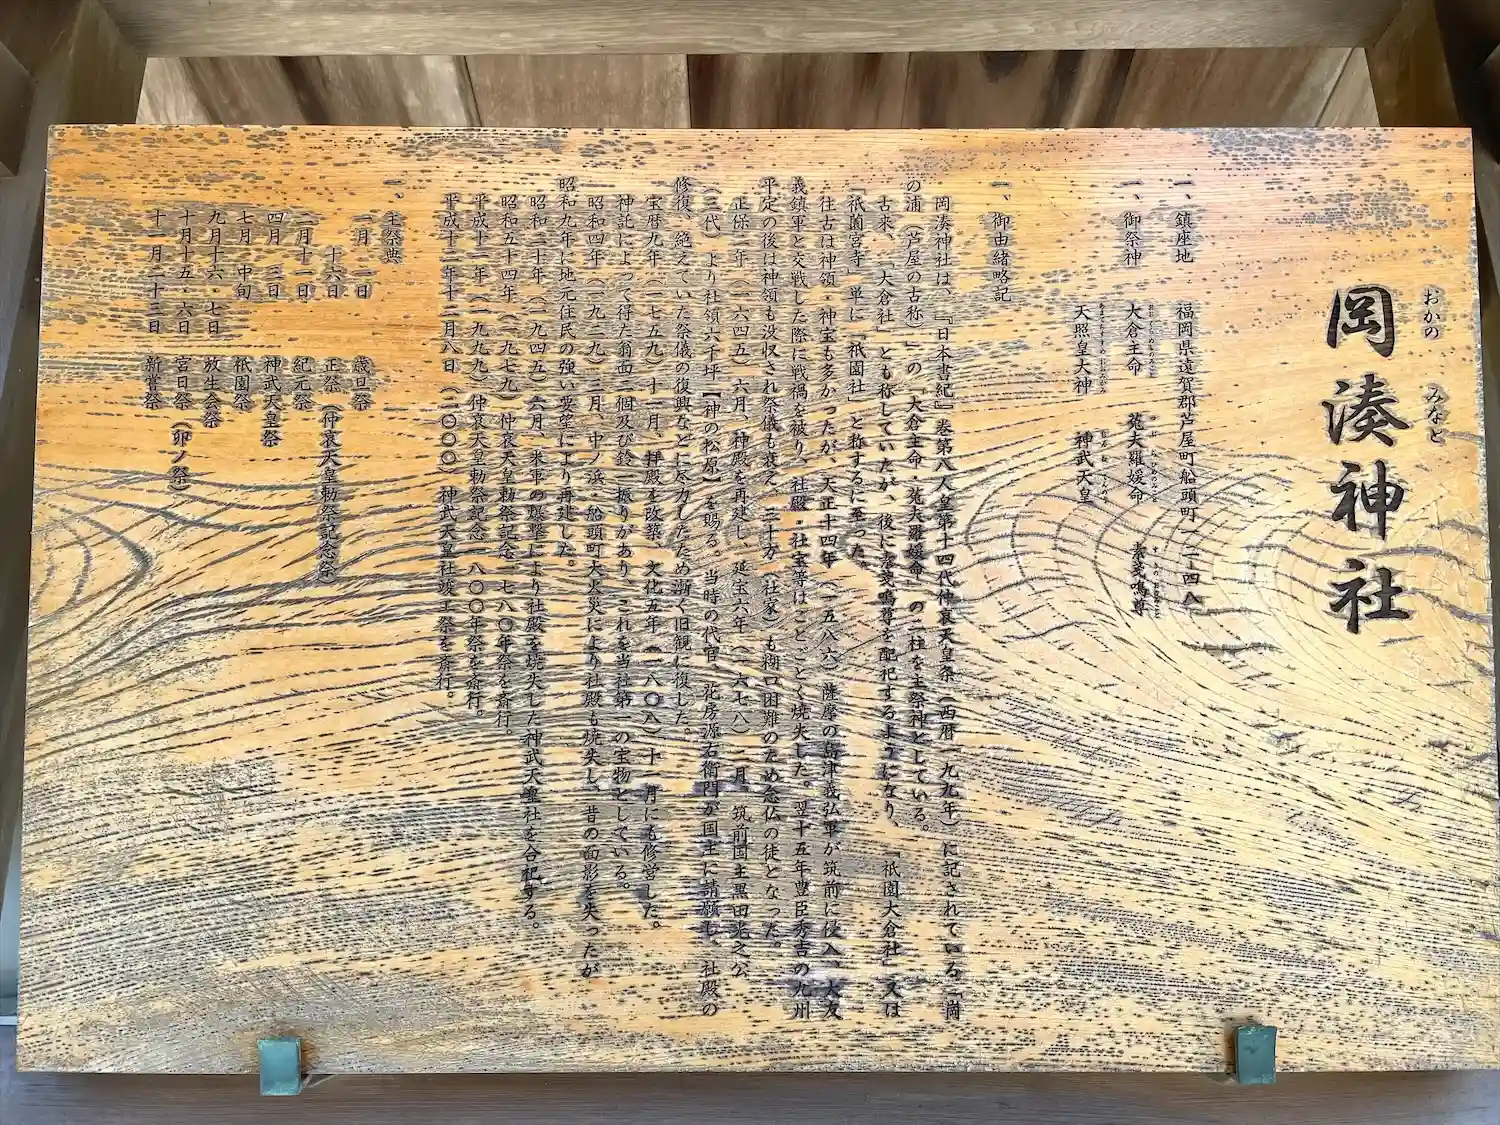 岡湊神社
おかの みなと
一、鎮座地 福岡県遠賀郡芦屋町船頭町一二-四八
一、御祭神 大倉主命 菟夫羅媛命 素戔嗚尊
天照皇大神 神武天皇
一、御由緒略記
岡湊神社は、『日本書紀』巻第八人皇第十四代仲哀天皇条（西暦一九九年）に記されている「崗
の浦（芦屋の古称）」の「大倉主命・菟夫羅媛命」の二柱を主祭神としている。
古来、「大倉社」とも称していたが、後に素戔嗚尊を配祀するようになり、「祇園大倉社」又は
「祇園宮寺」単に「祇園社」と称するに至った。
往古は神領・神宝も多かったが、天正十四年（一五八六）薩摩の島津義弘軍が筑前に侵入、大友
義鎮軍と交戦した際に戦禍を被り、社殿・社宝等はことごとく焼失した。翌十五年豊臣秀吉の九州
平定の後は神領も没収され祭儀も衰え、三十方（社家）も糊口困難のため念仏の徒となった。
正保二年（一六四五）六月、神殿を再建し、延宝六年（一六七八）二月、筑前国主黒田光之公
（三代）より社領六千坪【神の松原】を賜る。当時の代官、花房源右衛門が国主に請願し、社殿の
修復、絶えていた祭儀の復興などに尽力したため漸く旧観に復した。
宝暦九年（一七五九）十一月、拝殿を改築、文化五年（一八〇八）十一月にも修営した。
神託によって得た翁面二個及び鈴一振りがあり、これを当社第一の宝物としている。
昭和四年（一九二九）三月、中ノ浜・船頭町大火災により社殿も焼失し、昔の面影を失ったが
昭和九年に地元住民の強い要望により再建した。
昭和二十年（一九四五）六月、米軍の爆撃により社殿を焼失した神武天皇社を合祀する。
昭和五十四年（一九七九）仲哀天皇勅祭記念一七八〇年祭を斎行。
平成十一年（一九九九）仲哀天皇勅祭記念一八〇〇年祭を斎行。
平成十二年十二月八日（二〇〇〇）神武天皇社竣工祭を斎行。
一、主祭典
一月 一日 歳旦祭
十六日 正祭（仲哀天皇勅祭記念祭）
二月十一日 紀元祭
四月 三日 神武天皇祭
七月 中旬 祇園祭
九月十六・七日 放生会祭
十月十五・六日 宮日祭（卯ノ祭）
十一月二十三日 新嘗祭